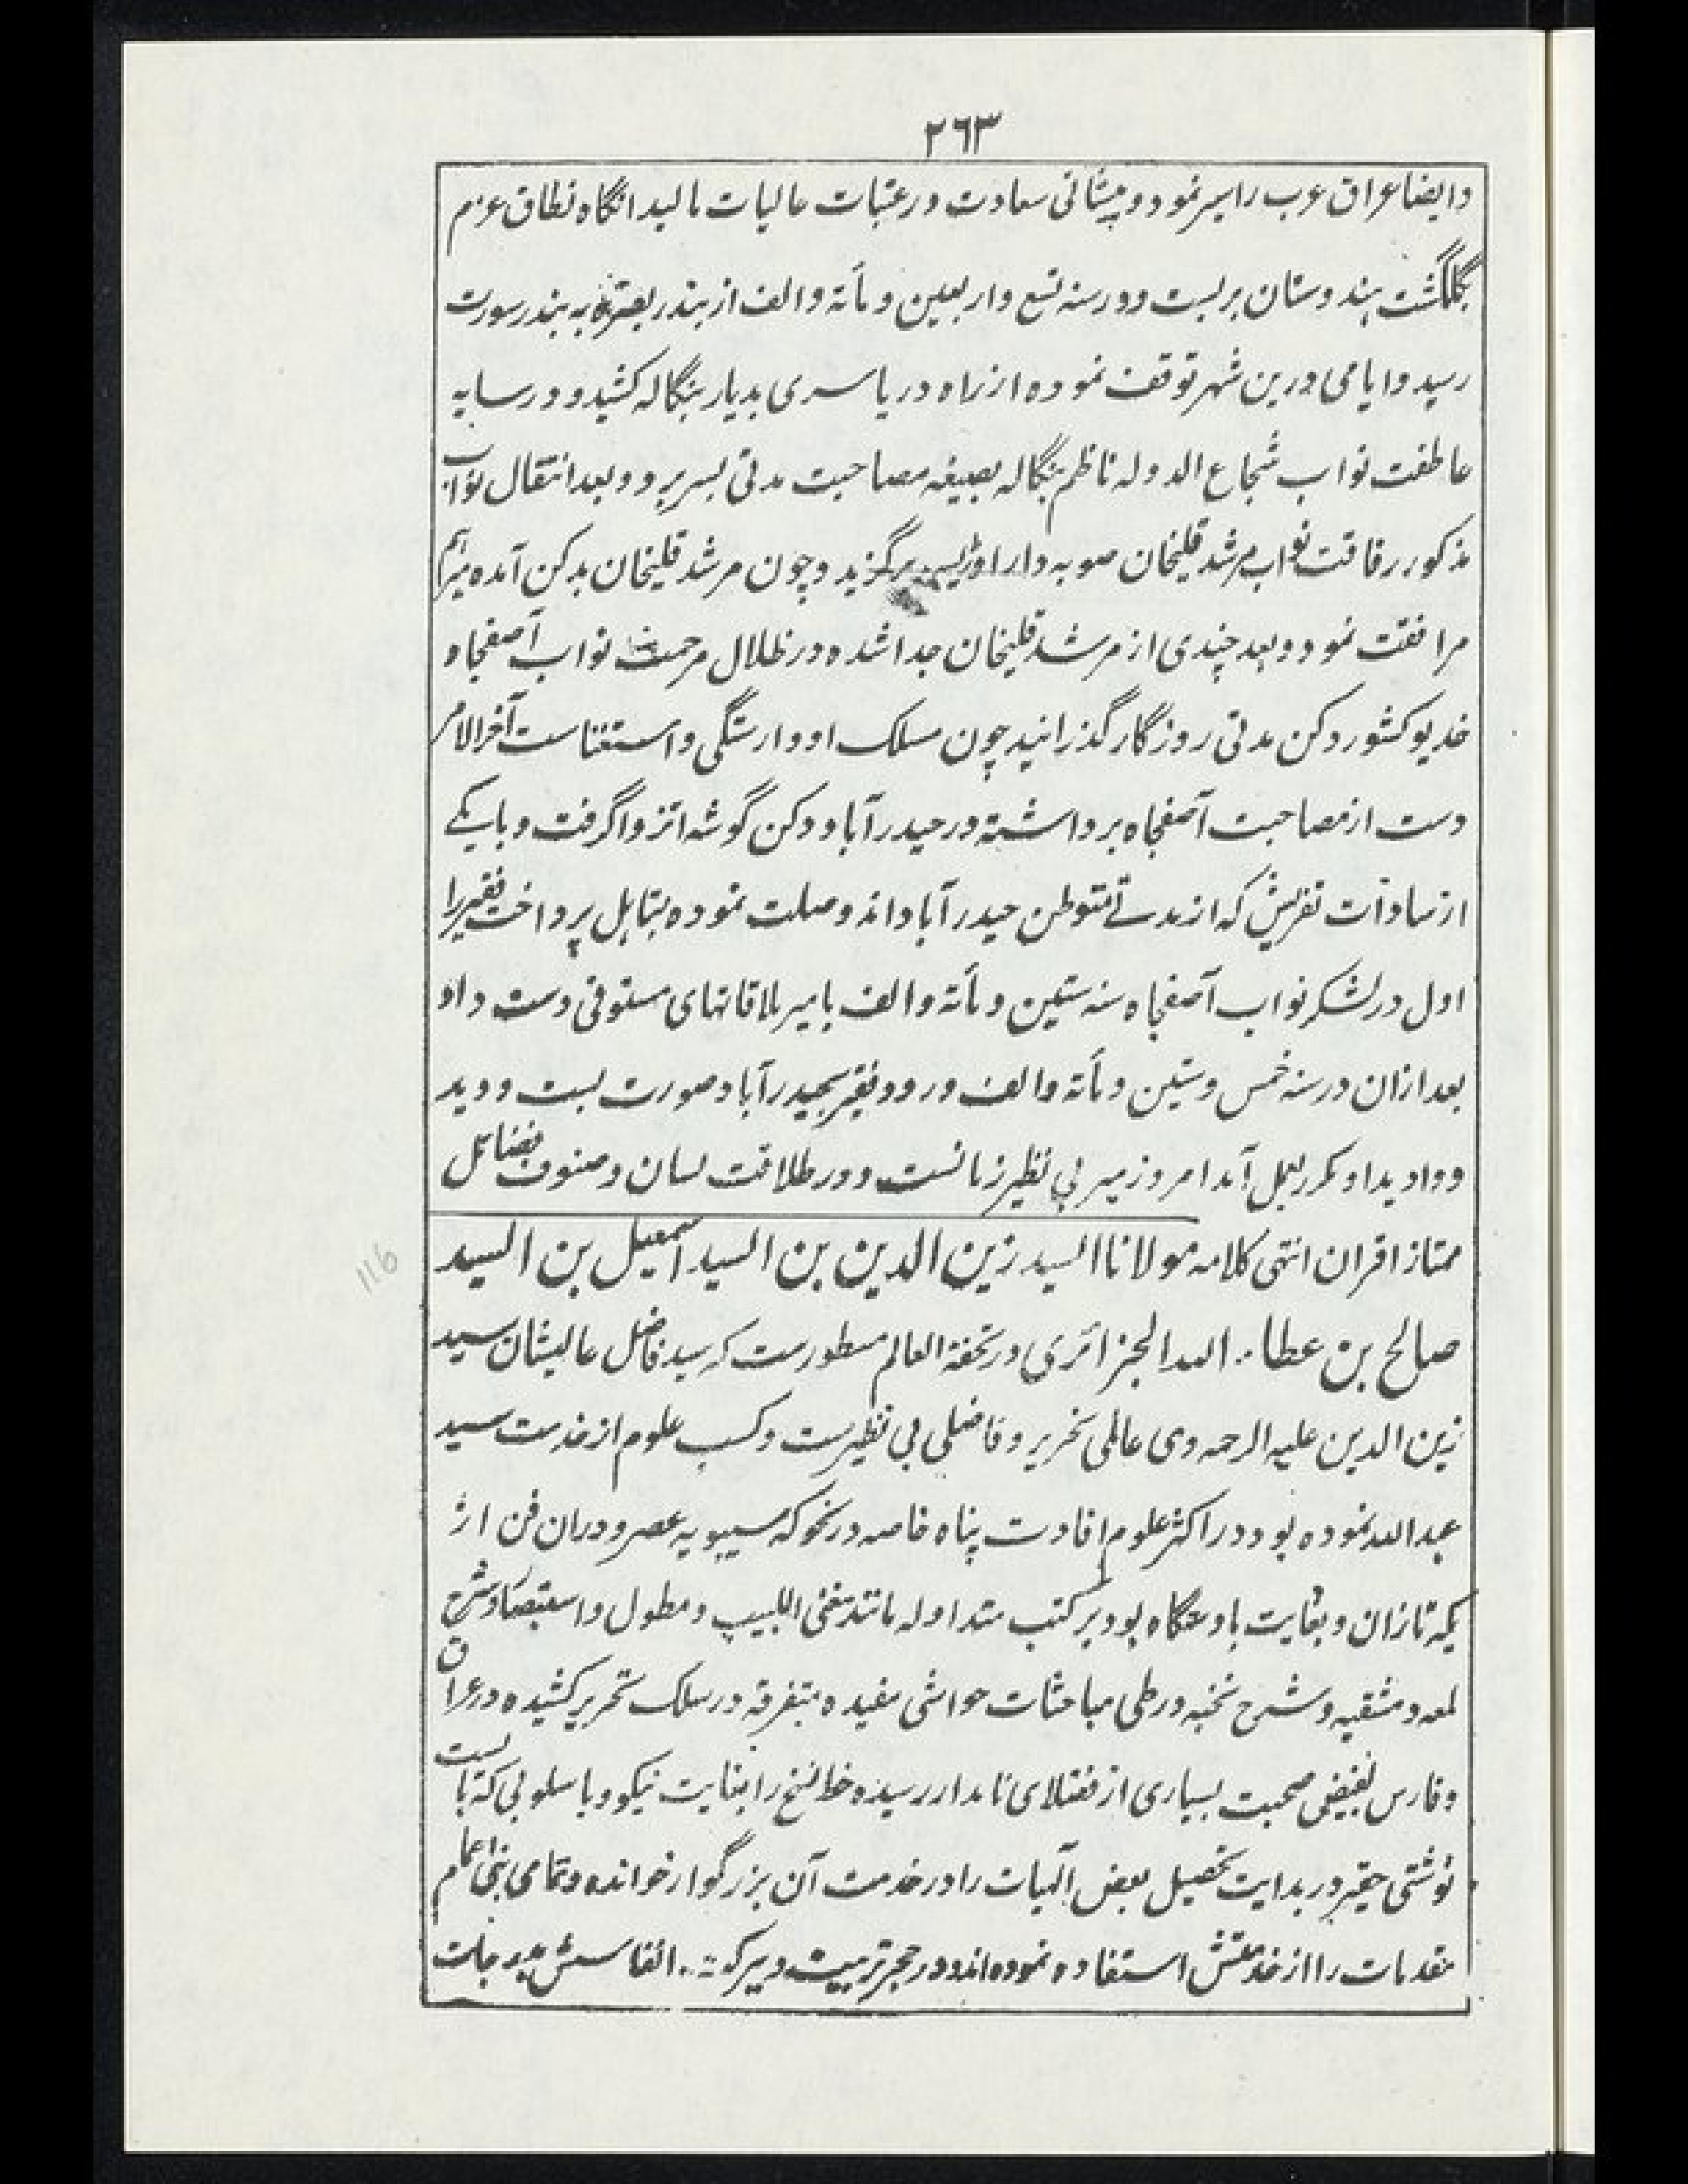 ٢٦٣
و ایضا عراق عرب را سیر نمود و پیشانی سعادت در عتبات عالیات مالید انگاه نطاق عزم
بگلگشت هندوستان بربست و در سنه تسع و اربعین و مأته و الف از بندر بصره به بندر سورت
رسید و ایامی درین شهر توقف نموده از راه دریا سری بدیار بنگاله کشید و در سایه
عاطفت نواب شجاع الدوله ناظم بنگاله بصیغه مصاحبت مدتی بسر برد و بعد انتقال نواب
مذکور رفاقت نواب مرشد قلیخان صوبه دار اوڑیسه برگزید و چون مرشد قلیخان بدکن آمده میر هم
مرافقت نمود و بعد چندی از مرشد قلیخان جدا شده در ظلال مرحمت نواب آصفجاه
خدیو کشور دکن مدتی روزگار گذرانید چون مسلک او وارستگی و استغناست آخر الامر
دست از مصاحبت آصفجاه برداشته در حیدرآباد دکن گوشه انزوا گرفت و با یکے
از سادات تفریش که از مدتے متوطن حیدرآباد اند وصلت نموده بتاهل پرداخت فقیر را
اول در لشکر نواب آصفجاه سنه ستین و مأته و الف با میر ملاقاتهای مستوفی دست داد
بعد ازان در سنه خمس و ستین و مأته و الف ورود فقیر بحیدرآباد صورت بست و دید
و وادید او مکرر بعمل آمد امروز میر بی نظیر زمانست و در طلاقت لسان و صنوف فضائل
ممتاز اقران انتهی کلامه مولانا السید زین الدین بن السید اسمعیل بن السید
صالح بن عطاء الله الجزائری در تحفة العالم مسطورست که سید فاضل عالیشان سید
زین الدین علیه الرحمه وی عالمی نحریر و فاضلی بی نظیرست و کسب علوم از خدمت سید
عبدالله نموده بود در اکثر علوم افادت پناه خاصه در نحو که سیبویه عصر و دران فن از
یکه تازان و بغایت با دستگاه بود بر کتب متداوله مانند مغنی اللبیب و مطول و استبصار و شرح
لمعه دمشقیه و شرح نخبه در طی مباحثات حواشی مفیده متفرقه در سلک تحریر کشیده در عراق
و فارس بفیض صحبت بسیاری از فضلای نامدار رسیده خط نسخ را بغایت نیکو و با سلوبی که بایست
نوشتی حقیر در بدایت تحصیل بعض الهیات را در خدمت آن بزرگوار خوانده و تمامی بنی اعمام
مقدمات را از خدمتش استفاده نموده اند و در حجر تربیت و ببرکت انفاسش بدرجات
116